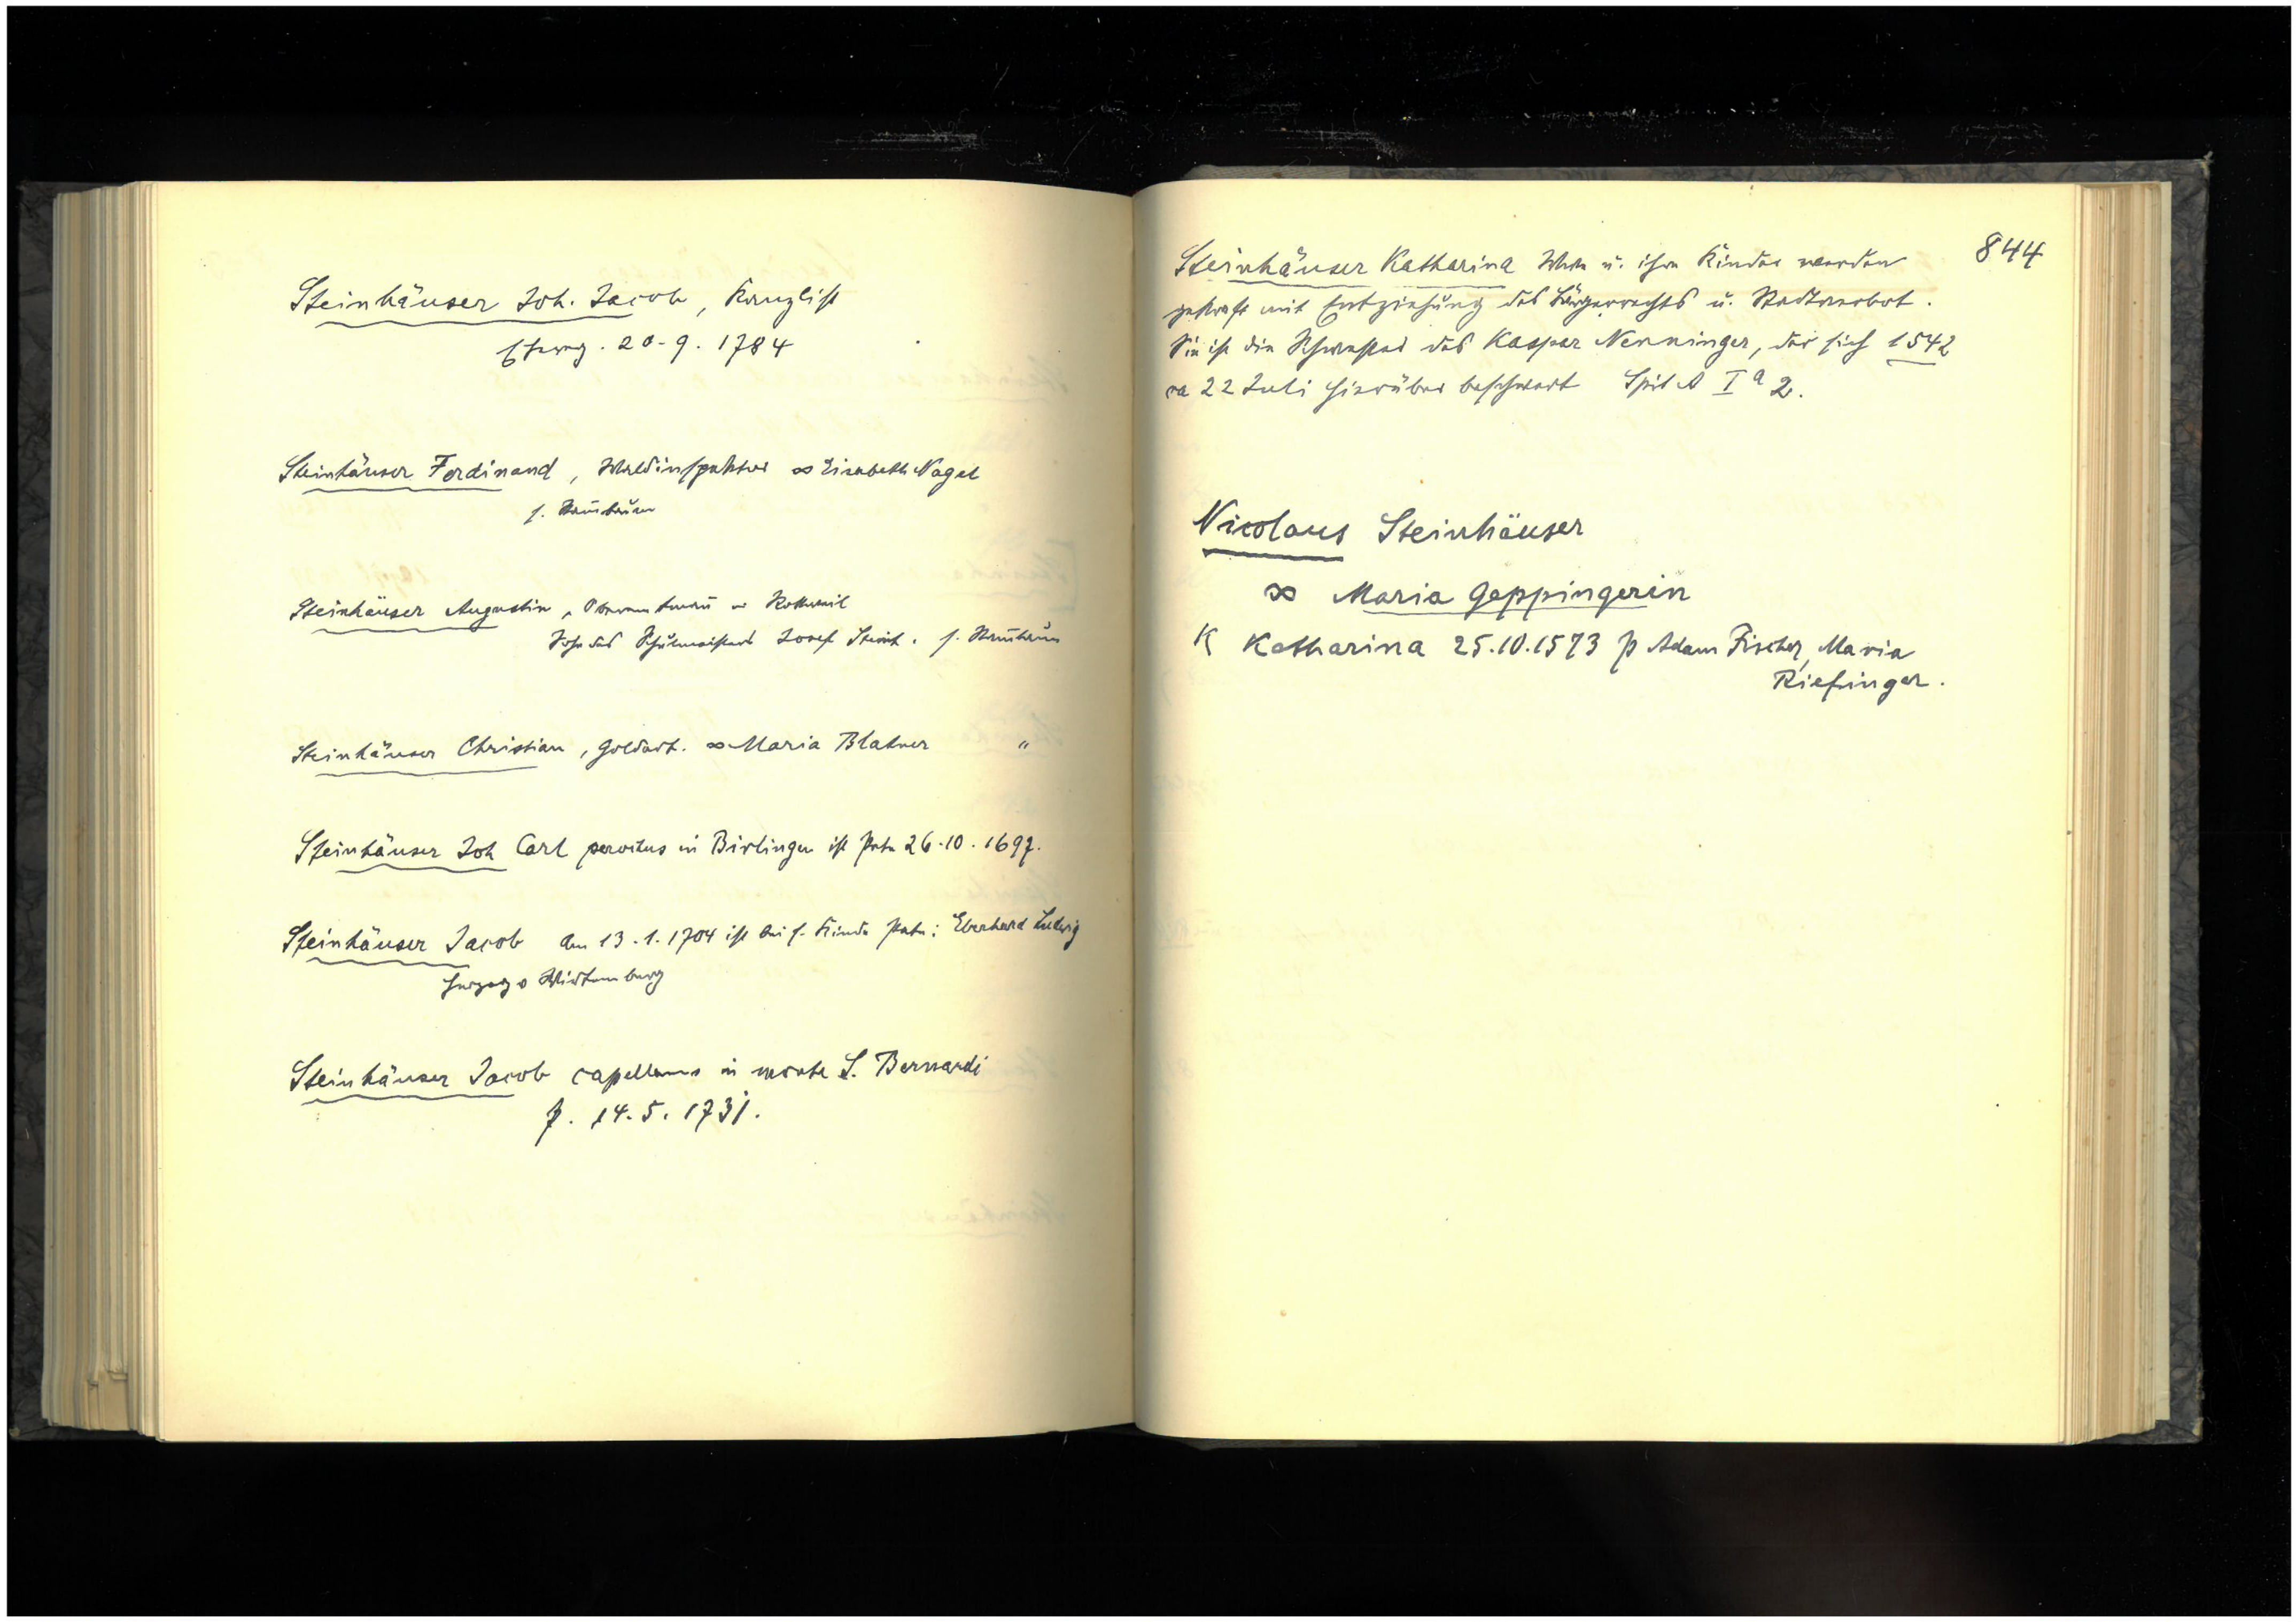 Steinhäuser Joh. Jacob, Kanzlist
Ehevertrag. 20.9.1784
Steinhäuser Ferdinand, Waldinspektor ∞ Elisabeth Nagel
s. Stam̄baum
Steinhäuser Augustin, Oberamtman̄ v Rottweil
Sohn des Schulmeisters Josef Steinh. s. Stam̄baum
Steinhäuser Christian, Goldarb. ∞ Maria Blatner "
Steinhäuser Joh Carl in Birlingen ist Pate 26.10.1697.
Steinhäuser Jacob Am 13.1.1704 ist bei s. Kinde Pate: Eberhard Ludwig
Herzog v Wirtemberg
Steinhäuser Jacob capellanus in monte S. Bernardi
14.5.1731.
844
Steinhäuser Katharina Wwe u. ihre Kinder werden
gestraft mit Entziehung des Bürgerrechts u. Stadtverbot.
Sie ist die Schwester des Kaspar Nenninger, der sich 1542
ca 22 Juli hierüber beschwert Spit A I a 2.
Nicolaus Steinhäuser
∞ Maria Geppingerin
K Katharina 25.10.1573 p Adam Fischer, Maria
Riefinger.